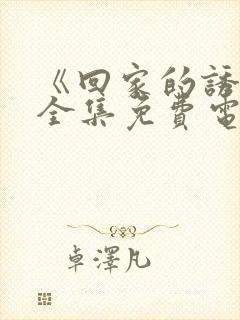 《回家的誘
全集免費電
卓澤凡